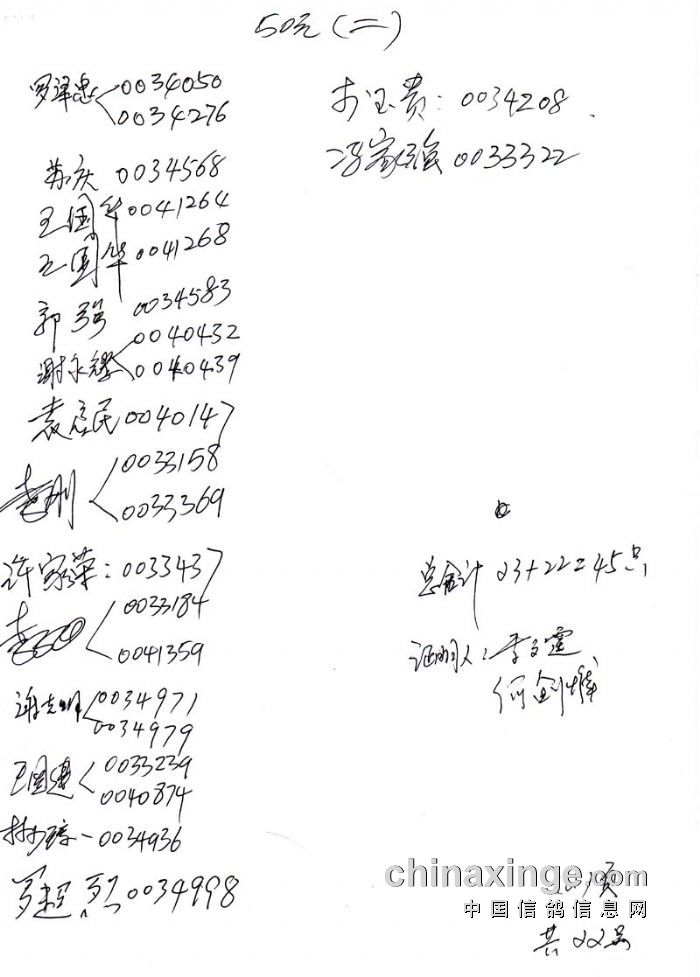 50元(二)
罗泽忠 0034050
0034276
苏庆 0034568
王国华 0041264
王国华 0041268
郭强 0034583
谢永 0040432
0040439
袁 民 0040147
刚 0033158
0033369
许家荣: 0033437
0033184
0041359
谢志明 0034971
0034979
王国建 0033239
0040874
林 0034936
罗 0034998
玉贵: 0034208
冯家强 0033322
总合计 23+22=45只
证明人: 李 霆
何剑
chinaxinge.com
中国信鸽信息网
共22只